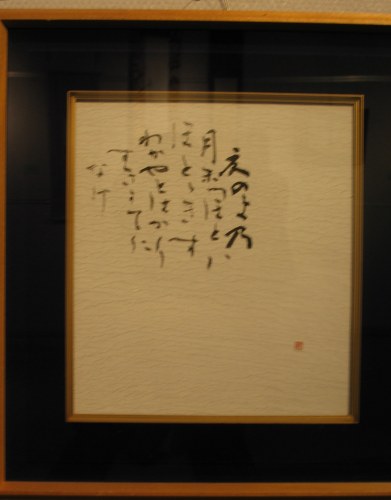 夏のよ乃
月末つほとハ
ほとゝきす
わかやとはかり
すきかてに
なけ